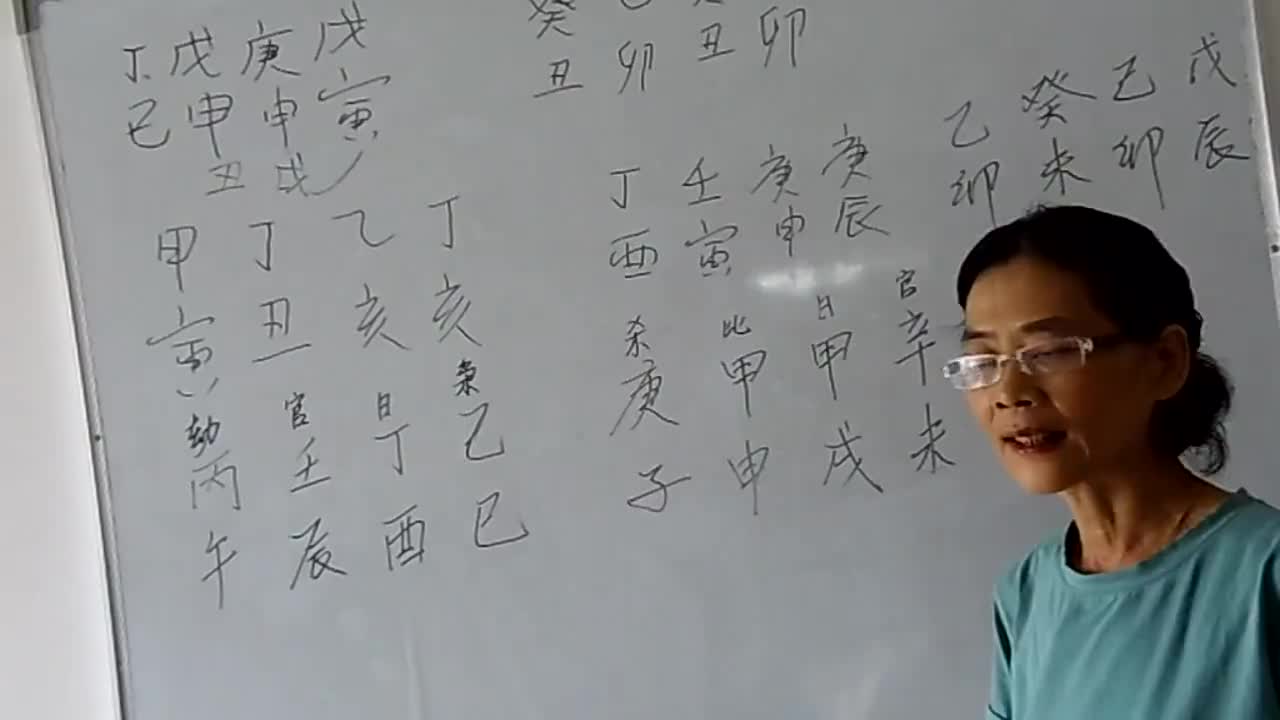 丁 戊 庚 戊
巳 申 申 寅
丑 戌
甲 丁 乙 丁
寅 丑 亥 亥
劫 官 日 枭
丙 壬 丁 乙
午 辰 酉 巳
癸
丑 卯 丑 卯
丁 壬 庚 庚
酉 寅 申 辰
杀 比 日 官
庚 甲 甲 辛
子 申 戌 未
乙 癸 己 戊
卯 未 卯 辰